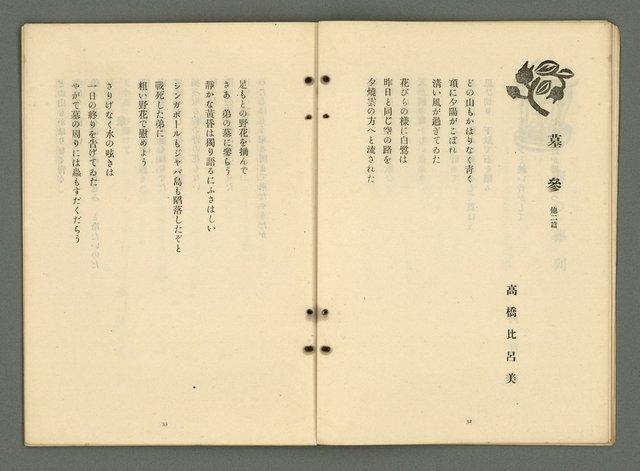 墓參
他二篇
高橋比呂美
どの山もかはりなく靑く
項に夕陽がこぼれ
淸い風が過ぎてゐた
花びらの樣に白鷺は
昨日と同じ空の路を
夕燒雲の方へと流された
32
足もとの野花を摘んで
さあ、弟の墓に參らう
靜かな黃昏は獨り語るにふさはしい
シンガポールもジヤバ島も陷落したぞと
戰死した弟に
粗い野花で慰めよう
さりげなく水の呟きは
一日の終りを吿げてゐた
やがて墓の周りには蟲もすだくだらう
33